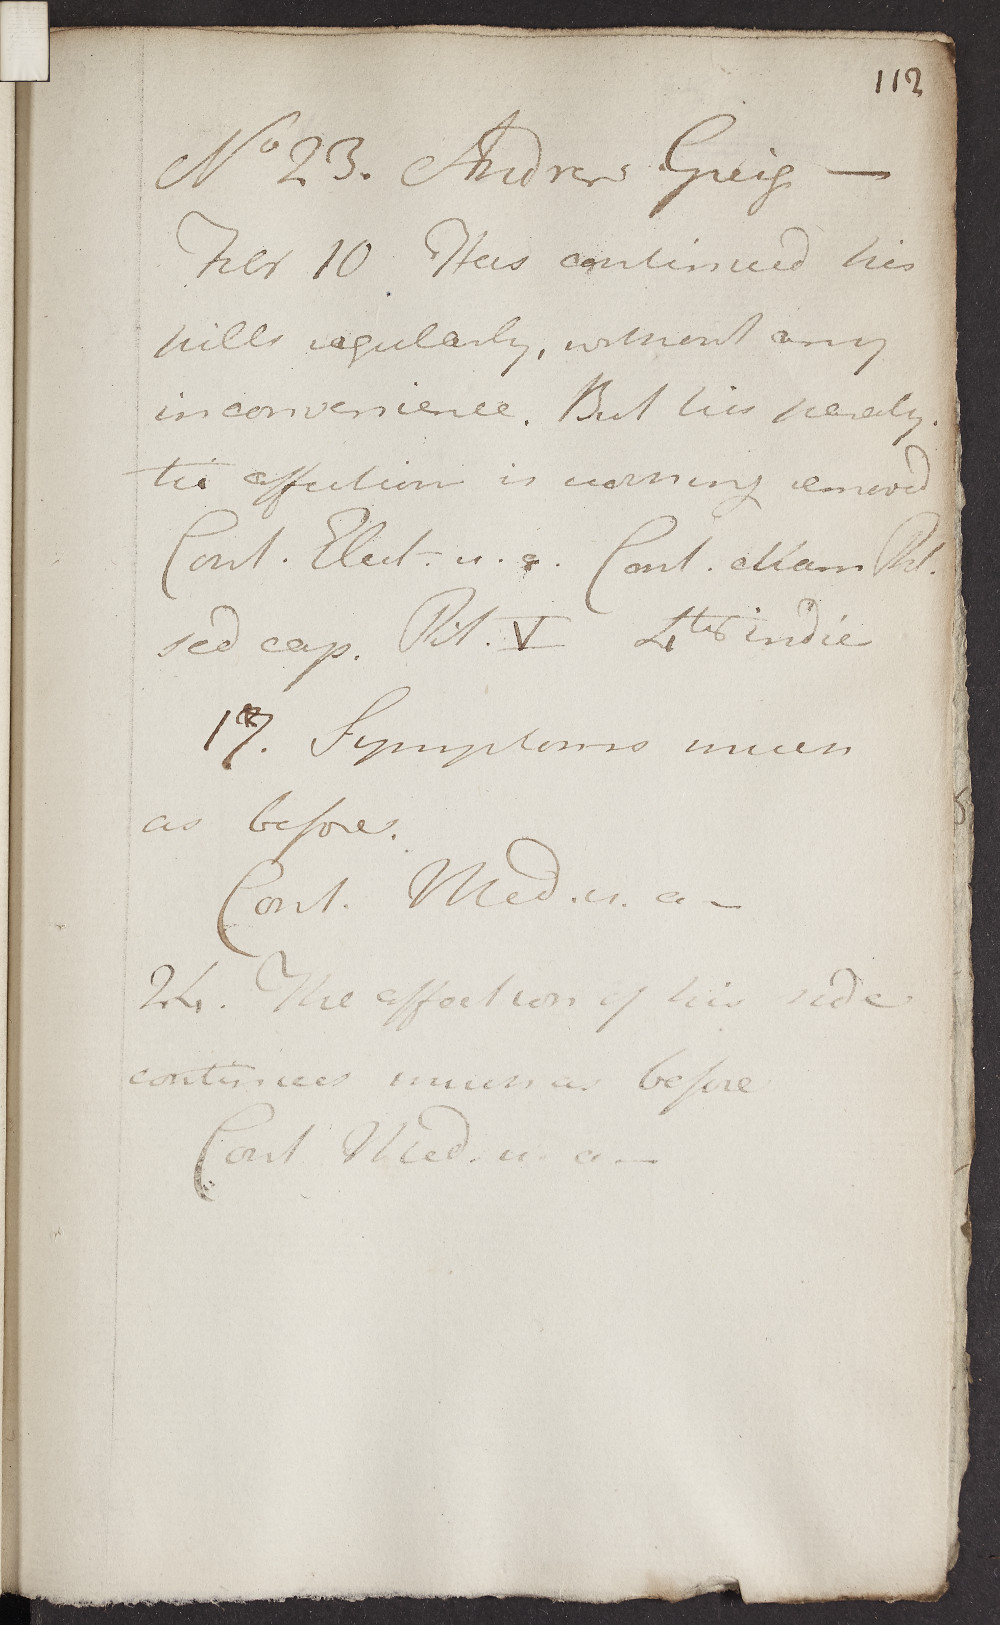 112
No 23. Andrew Greig —
Feb 10 Has continued his
pills regularly, without any
inconvenience. But his paraly,
tic affection is nothing removed
Cont. Elect. u. a. Cont. etiam Pil.
sed cap. Pil. V 4ter indie
17. Symptoms much
as before.
Cont. Med. u. a —
24. The affection of his side
continues much as before
Cont Med. u. a —